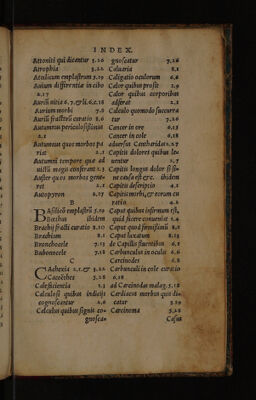 INDEX.
Attoniti qui dicantur 3.20
Atrophia 3.22
Attalicum emplastrum 5.19
Auium differentia in cibo
2.17
Aurium morbi 7.0
Autumnus periculosissimus
2.1
Autumnus quos morbos pa
riat 2.1
Autumni tempore quæ ad
uictū magis conferant 1.3
Auster quos morbos gene-
ret 2.1
Autopyron 2.17
B
Basilicō emplastrū 5.19
Bœthus ibidem
Brachij fracti curatio 8.10
Brachium 8.1
Bronchocele 7.13
Bubonocele 7.18
C
Cachexia 3.22
Cacoëthes 5.28
Calefacientia 2.33
Calculosi quibus indicijs
cognoscantur 2.6
Calculus quibus signis co-
gnosca-
gnoscatur 7.26
Caluaria 8.1
Caligatio oculorum 6.6
Calor quibus prosit 1.9
Calor quibus corporibus
adserat 2.1
Calculo quomodo succurra
tur 7.26
Cancer in ore 6.15
Cancer in cole 6.18
aduersus Cantharidas 5.27
Capitis dolores quibus le-
uentur 2.7
Capitis longus dolor si si-
ne causa est &c. ibidem
Capitis descriptio 4.1
Capitis morbi, & eorum cu
ratio 4.2
Caput quibus infirmum est,
quid facere conueniat 1.4
Caput quid significauit 8.1
Caput luxatum 8.13
de Capillis fluentibus 6.1
Carbunculus in oculo 6.6
Carcinodes 6.8
Carbunculi in cole curatio
6.18
ad Carcinodas malag. 5.18
Cardiacus morbus quo di-
catur 3.19
Carcinoma 5.28
Casus